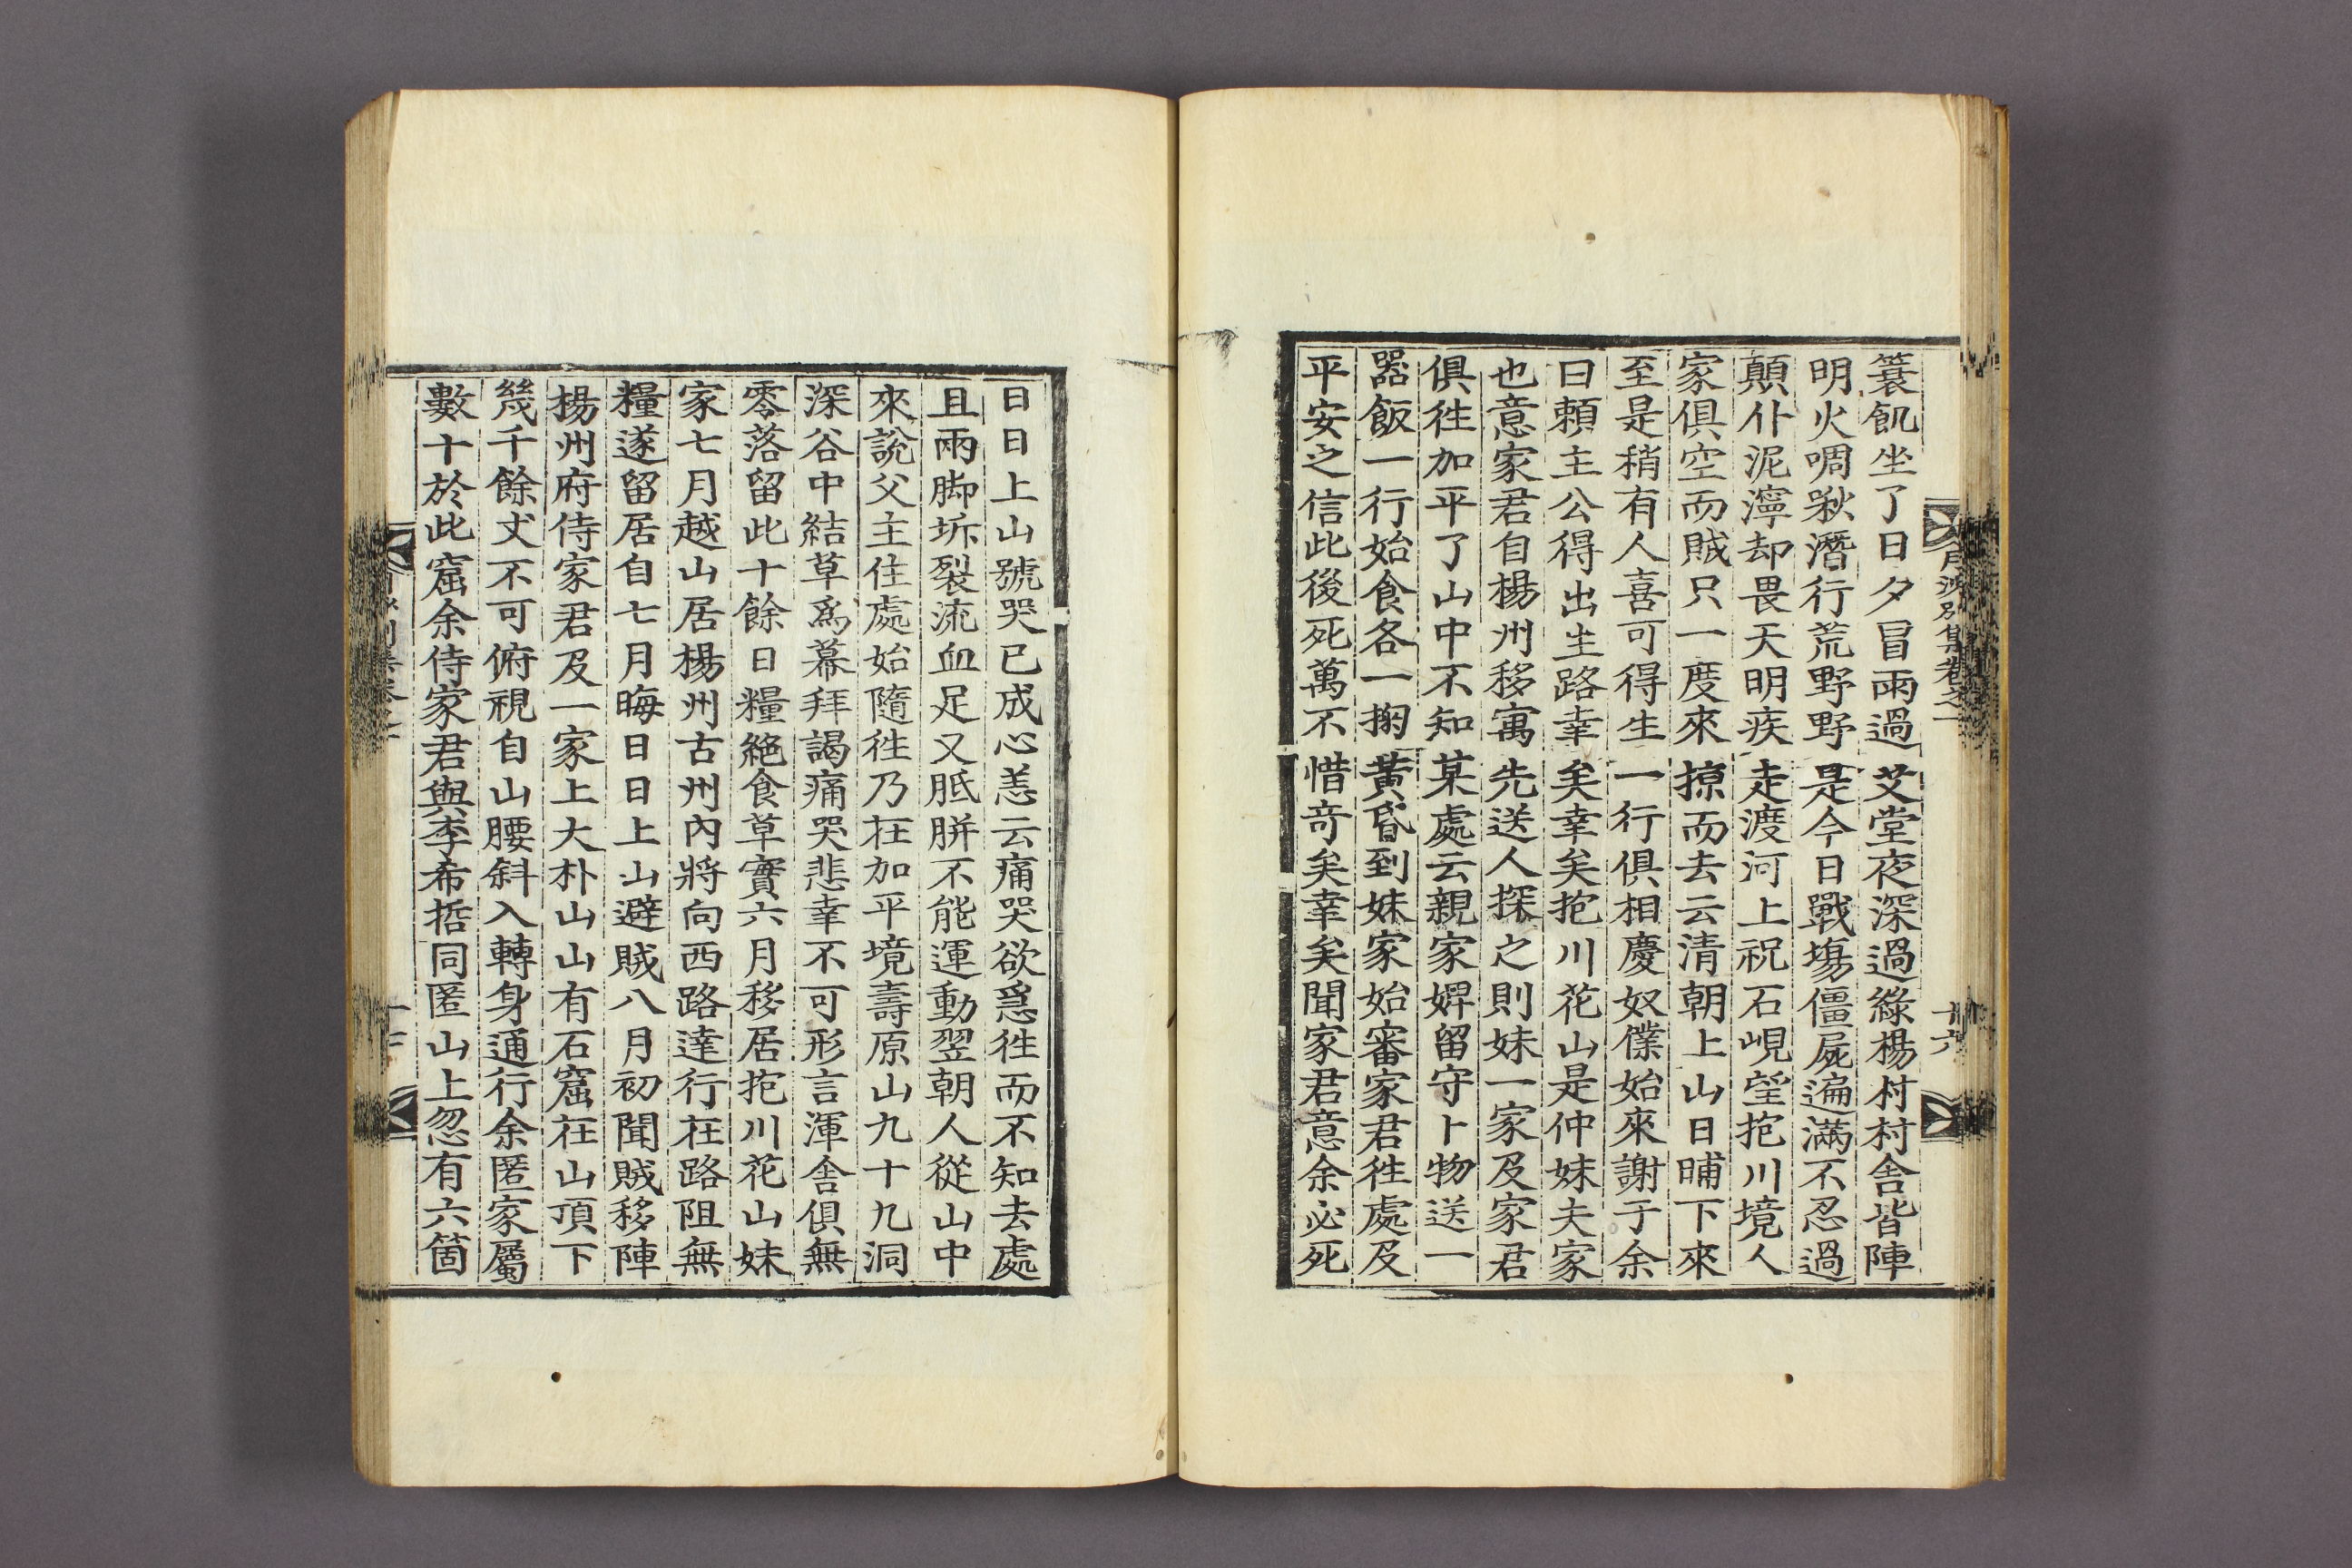 蓑飢坐了日夕冒雨過艾堂夜深過綠楊村村舍皆陣
明火啁啾潛行荒野野是今日戰塲僵屍遍滿不忍過
顛仆泥濘却畏天明疾走渡河上祝石峴望抱川境人
家俱空而賊只一度來掠而去云清朝上山日晡下來
至是稍有人喜可得生一行俱相慶奴僕始來謝于余
曰賴主公得出生路幸矣幸矣抱川花山是仲妹夫家
也意家君自楊州移寓先送人探之則妹一家及家君
俱徃加平了山中不知某處云親家婢留守卜物送一
器飯一行始食各一掬黃昏到妹家始審家君徃處及
平安之信此後死萬不惜奇矣幸矣聞家君意余必死
月波別集卷之一
十六
日日上山號哭已成心恙云痛哭欲爲徃而不知去處
且兩脚坼裂流血足又胝胼不能運動翌朝人從山中
來說父主住處始隨徃乃在加平境壽原山九十九洞
深谷中結草爲幕拜謁痛哭悲幸不可形言渾舍俱無
零落留此十餘日糧絕食草實六月移居抱川花山妹
家七月越山居楊州古州內將向西路達行在路阻無
糧遂留居自七月晦日日上山避賊八月初聞賊移陣
楊州府侍家君及一家上大朴山山有石窟在山頂下
幾千餘丈不可俯視自山腰斜入轉身通行余匿家屬
數十於此窟余侍家君與李希哲同匿山上忽有六箇